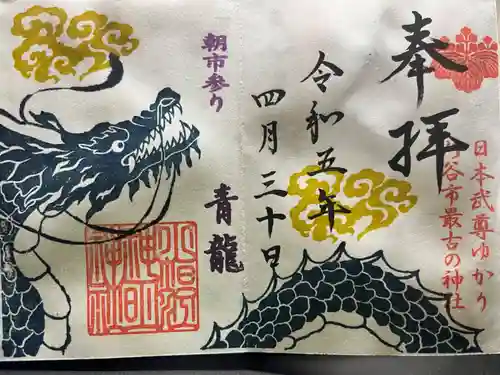 奉拝
日本武尊ゆかり
谷市最古の神社
令和五年
四月三十日
朝市参り
青龍
神明
神社